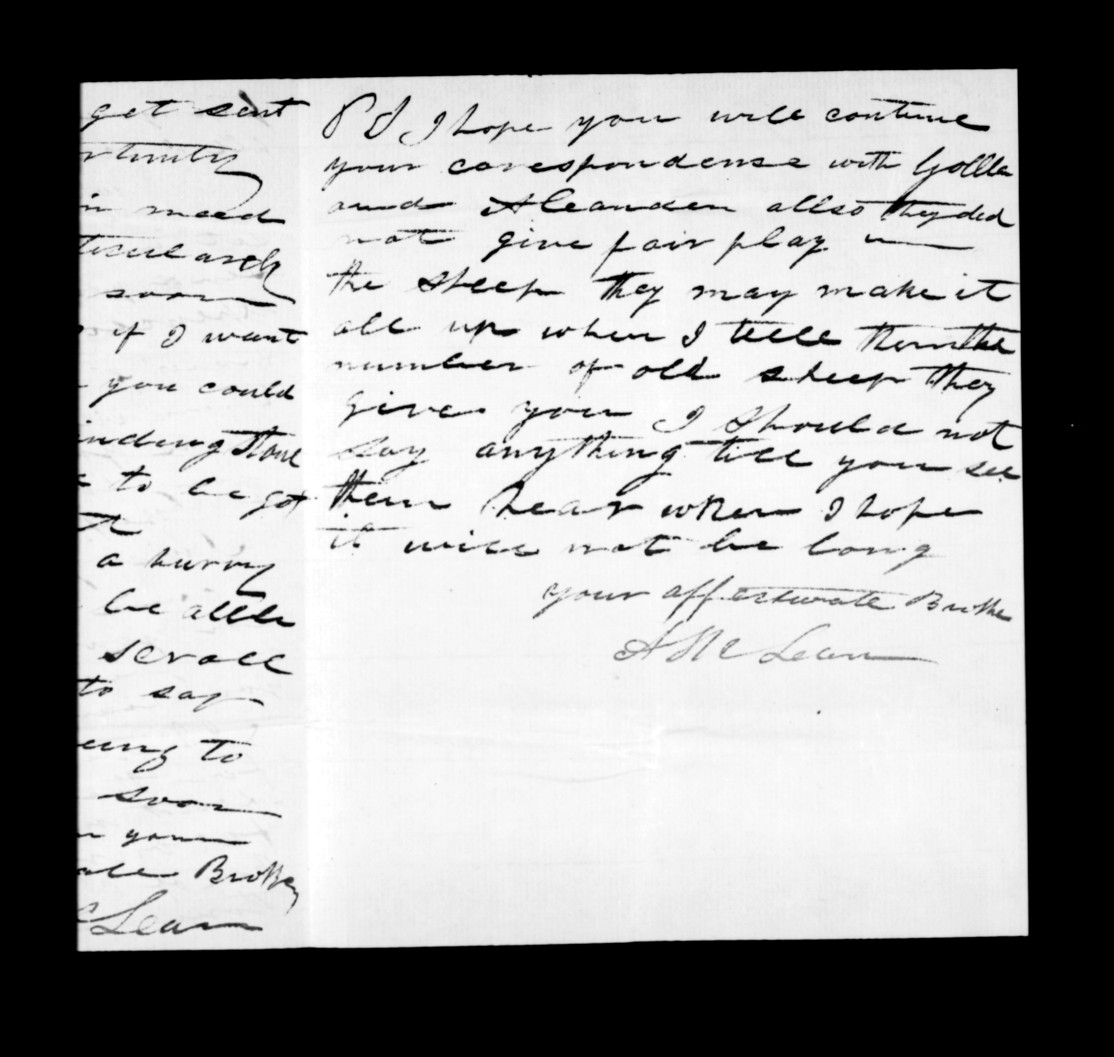 get sent
rtunity
in need
ticularly
soon
if I want
you could
inding stone
to be got
a hurry
be alble
scroll
to say
eing to
soon
you
ate Brother
Lean
P S I hope you will continue
your corespondense with Gollla
and Aleander allso they did
not give fair play in
the sheep they may make it
all up when I tell them the
number of old sheep they
give you I should not
say anything till you see
them hear when I hope
it will not be long
your affectunate Brothe
A McLean